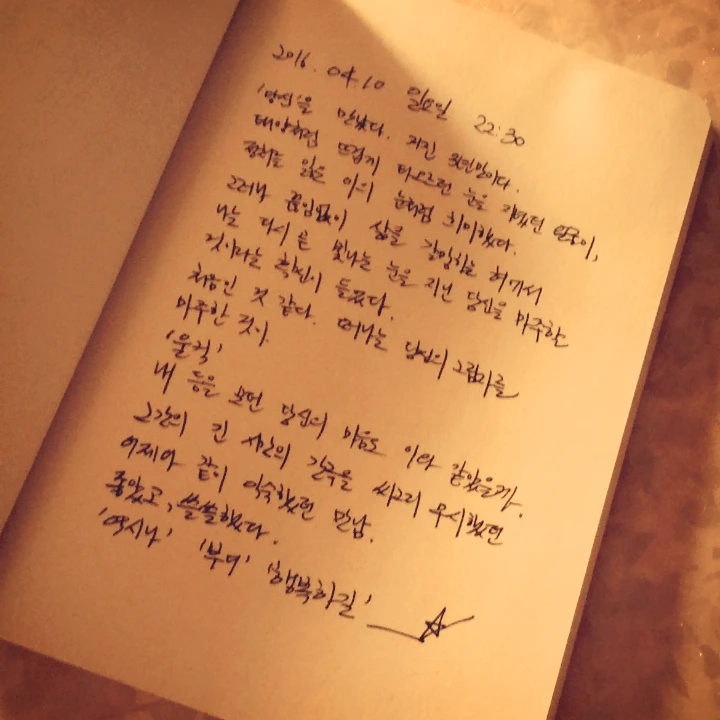 2016. 04. 10 일요일 22:30
'당신'을 만났다. 자진 3년만이다.
태양처럼 뜨겁게 타오르던 눈을 지녔던 영웅이,
잃은 이의 눈처럼 희미했다.
그러나 끊임없이 삶을 갈망하는
나는 다시 곧 빛나는 눈을 지닌 당신을 마주할
것이라는 확신이 들었다.
처음인 것 같다. 떠나는 당신의 그림자를
마주한 것이.
'울컥'
내 등을 보던 당신의 마음도 이와 같았을까.
그간의 긴 시간의 간극을 싸그리 무시했던
어제와 같이 익숙했던 만남.
좋았고, 쓸쓸했다.
'역시나' '부디' '행복하길'